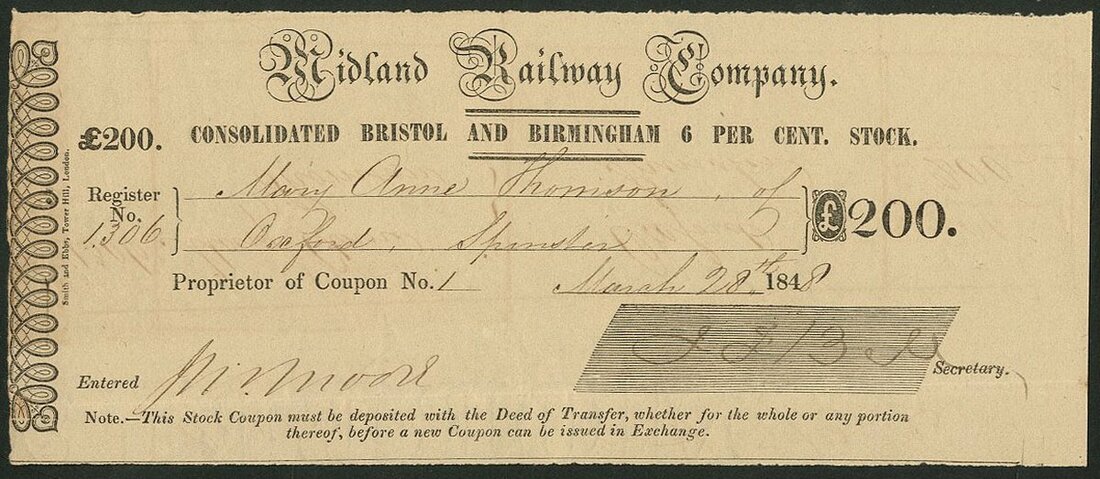 Midland Railway Company.
£200. CONSOLIDATED BRISTOL AND BIRMINGHAM 6 PER CENT. STOCK.
Register No. 1306
Mary Anne Thomson, of
Oxford, Spinster
£200.
Proprietor of Coupon No. 1 March 28th 1848
Entered
Secretary.
Note.—This Stock Coupon must be deposited with the Deed of Transfer, whether for the whole or any portion
thereof, before a new Coupon can be issued in Exchange.
Smith and Ebbs, Tower Hill, London.